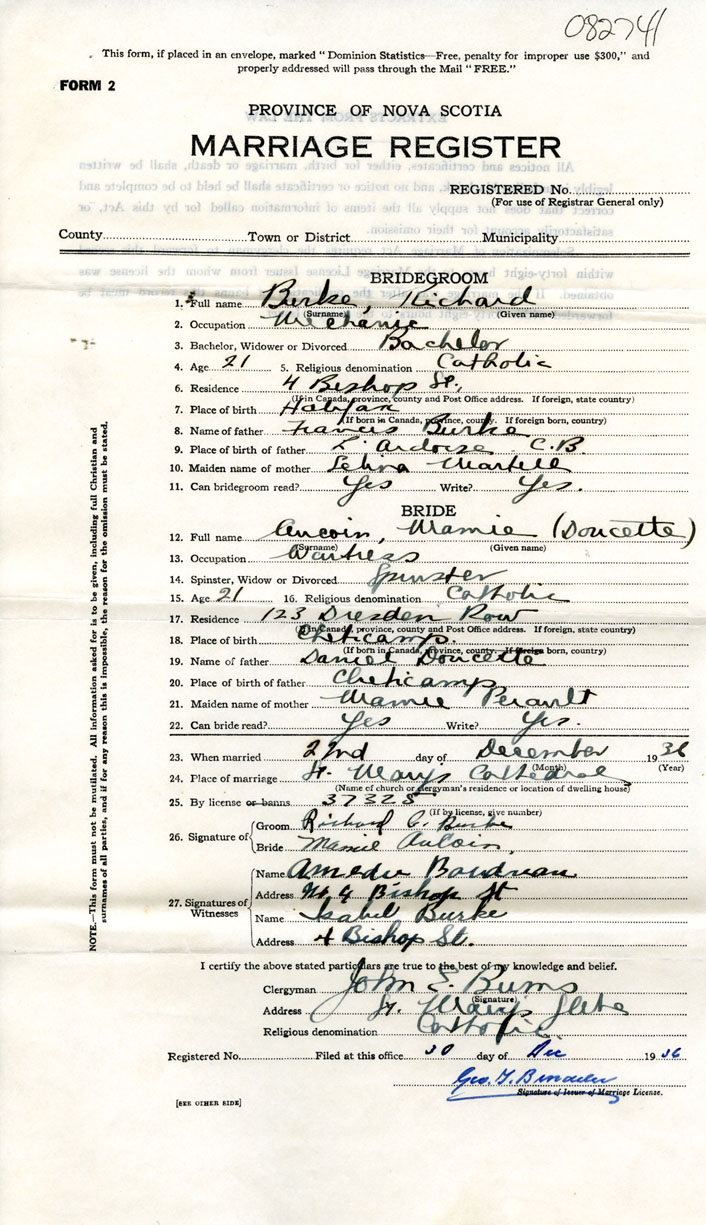 082741
This form, if placed in an envelope, marked "Dominion Statistics—Free, penalty for improper use $300," and
properly addressed will pass through the Mail "FREE."
FORM 2
PROVINCE OF NOVA SCOTIA
MARRIAGE REGISTER
REGISTERED No.
(For use of Registrar General only)
County Town or District Municipality
BRIDEGROOM
1. Full name Burke, Richard
(Surname) (Given name)
2. Occupation Mechanic
3. Bachelor, Widower or Divorced Bachelor
4. Age 21 5. Religious denomination Catholic
6. Residence 4 Bishop St.
(If in Canada, province, county and Post Office address. If foreign, state country)
7. Place of birth Halifax
(If born in Canada, province, county. If foreign born, country)
8. Name of father Francis Burke
9. Place of birth of father L'Ardoise C.B
10. Maiden name of mother Martell
11. Can bridegroom read? Yes Write? Yes.
BRIDE
12. Full name Aucoin, Mamie (Doucette)
(Surname) (Given name)
13. Occupation Waitress
14. Spinster, Widow or Divorced Spinster
15. Age 21 16. Religious denomination Catholic
17. Residence 123 Dresden Row
(If in Canada, province, county and Post Office address. If foreign, state country)
18. Place of birth Cheticamp.
(If born in Canada, province, county. If foreign born, country)
19. Name of father Daniel Doucette
20. Place of birth of father Cheticamp
21. Maiden name of mother Mamie
22. Can bride read? Yes Write? Yes.
23. When married 22nd day of December 1936
(Month) (Year)
24. Place of marriage St. Marys Cathedral
(Name of church or clergyman's residence or location of dwelling house)
25. By license or banns 37325
(If by license, give number)
26. Signature of Groom Richard C. Burke
Bride Mamie Aucoin.
27. Signatures of Witnesses Name Amedie Boudreau
Address 4 Bishop St
Name Isabel Burke
Address 4 Bishop St.
I certify the above stated particulars are true to the best of my knowledge and belief.
Clergyman John E. Burns
(Signature)
Address St. Marys Glebe
Religious denomination Catholic
Registered No. Filed at this office 30 day of Dec 1936
Geo. T.
Signature of Issuer of Marriage License.
[SEE OTHER SIDE]
NOTE.—This form must not be mutilated. All information asked for is to be given, including full Christian and
surnames of all parties, and if for any reason this is impossible, the reason for the omission must be stated.